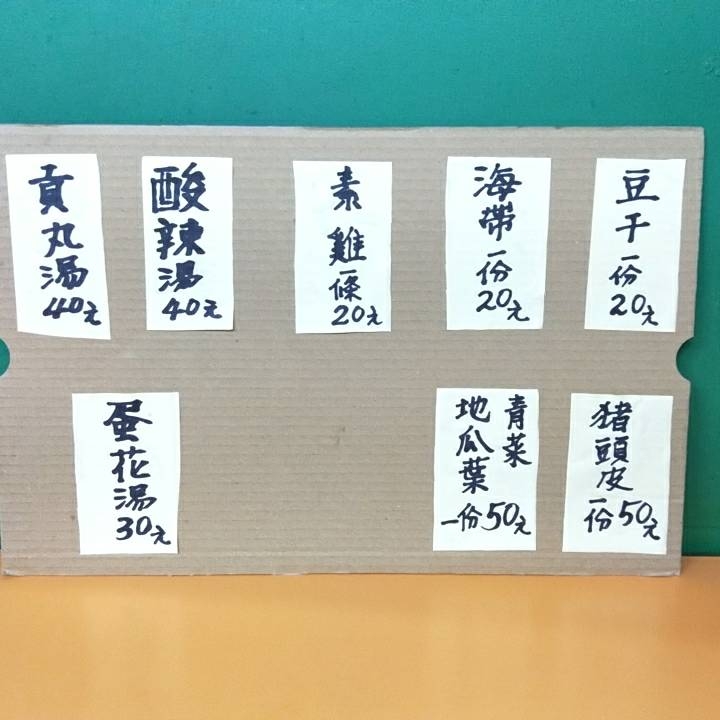 豆干一份20元
海帶一份20元
素雞一條20元
酸辣湯40元
貢丸湯40元
猪頭皮一份50元
青菜
地瓜葉一份50元
蛋花湯30元